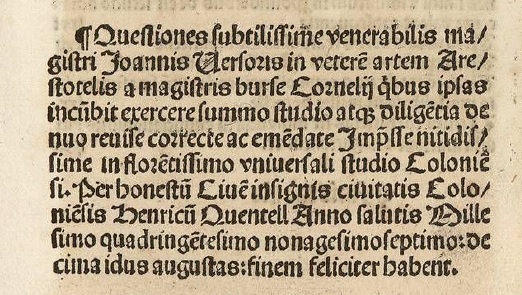 ¶Questiones subtilissime venerabilis ma/
gistri Joannis Versoris in veterē artem Are/
stotelis a magistris burse Cornelij q̄bus ipsas
incūbit exercere summo studio atqꝫ diligētia de
nuo reuise correcte ac emēdate Jmp̄sse nitidis/
sime in florētissimo vniuersali studio Coloniē
si. Per honestū Ciuē insignis ciuitatis Colo/
niēsis Henricū Quentell Anno salutis Mille
simo quadringētesimo nonagesimoseptimo: de
cima idus augustas: finem feliciter habent.